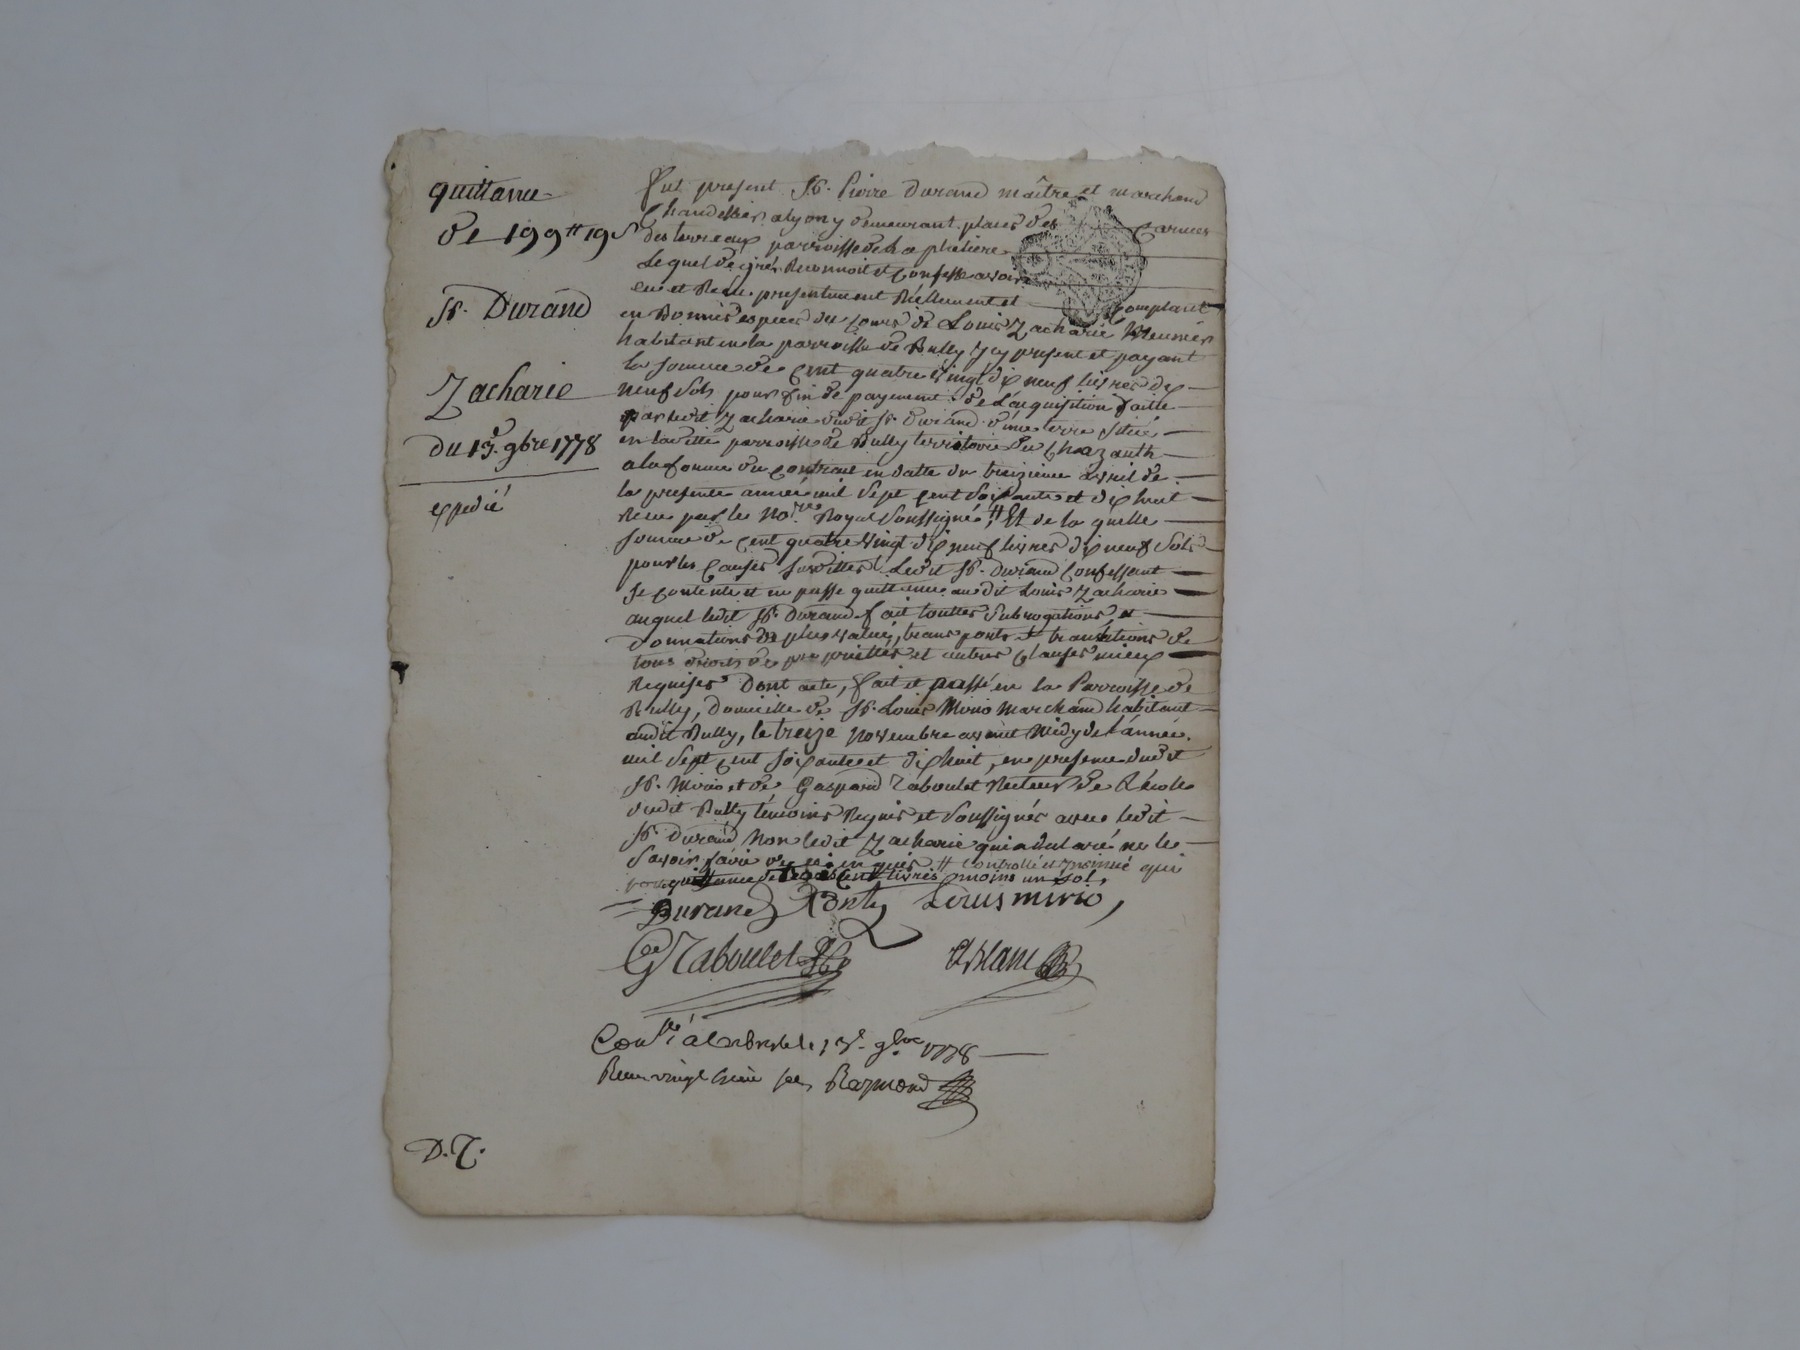 quittance
de 199tt 19s
Sr. Durand
Zacharie
du 13e. 9bre 1778
expedié
fut present Sr. Pierre Durand maître et marchand
Chandellier a lyon y demeurant place des Carmes
des terreaux parroisse de la platiere
Lequel de gré Reconnoit et Confesse avoir
eu et Receu presentement Réellement et Comptant
en Bonnes especes du cours de Louis Zacharie
habitant en la parroisse de Bully icy present et payant
la somme de Cent quatre vingt dix neuf livres dix
neuf sols pour fin de payement de l'acquisition faitte
par ledit Zacharie dudit Sr. Durand d'une terre située
en laditte parroisse de Bully territoire du Chazauth
a la forme du Contract en datte du treizieme avril de
la presente année mil sept Cent soixante et dix huit
Receu par le Nore. Royal soussigné, # Et de la quelle
somme de Cent quatre vingt dix neuf livres dix neuf sols
pour les Causes susdittes Ledit Sr. Durand Confessant
se contente et en passe quittance audit Louis Zacharie
auquel ledit Sr. Durand fait touttes subrogations, et
Donnations de plus value, transports et translations de
tous droits de proprietter et autres Clauses mieux
Requises Dont acte, fait et passé en la Parroisse de
Bully, Domicille de Sr. Louis Mirio Marchand habitant
audit Bully, le treize Novembre avant Midy de l'année
mil sept Cent soixante et dix huit, en presence dudit
Sr. Mirio et de Gaspard Taboulet Recteur de l'école
dudit Bully témoins Requis et soussignés avec ledit
Sr. Durand Non ledit Zacharie qui a declaré ne le
savoir faire de ce enquis # Controllé et insinué qui
quittance de livres moins un sol.
Durand Louis mirio,
G Taboulet
Conllé a le 13e. 9bre 1778
Receu vingt huit sols Raymond
D. T.